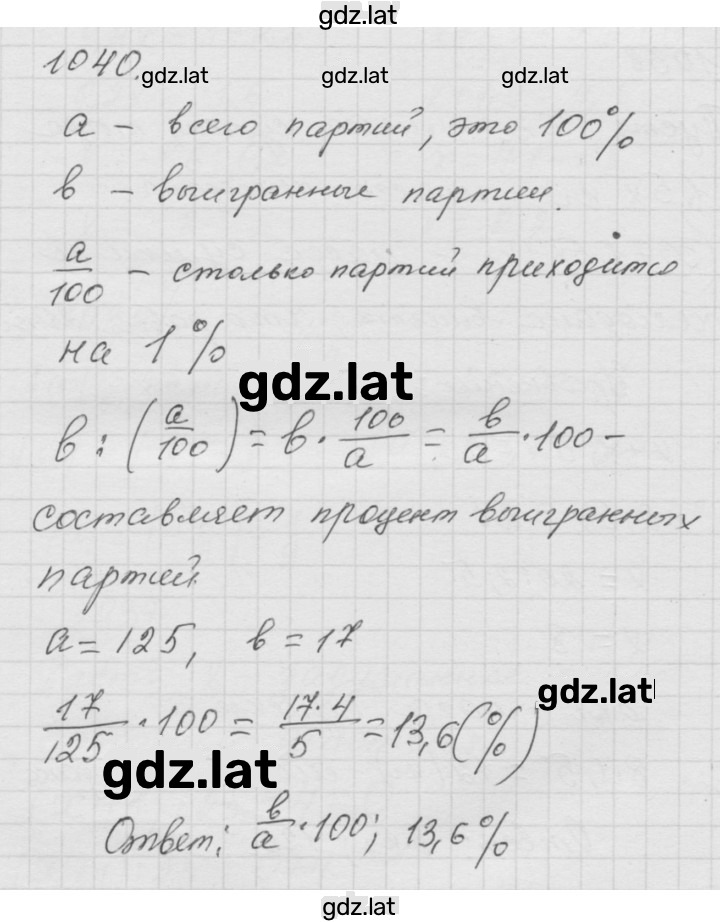 gdz.lat
1040.
gdz.lat gdz.lat gdz.lat
a – всего партий, это 100%
в – выигранные партии.
a/100 – столько партий приходится
на 1%
gdz.lat
в : (a/100) = в · 100/a = в/a · 100 –
составляет процент выигранных
партий.
a = 125, в = 17
gdz.lat
17/125 · 100 = 17·4/5 = 13,6(%)
gdz.lat
Ответ: в/a · 100; 13,6%
gdz.lat